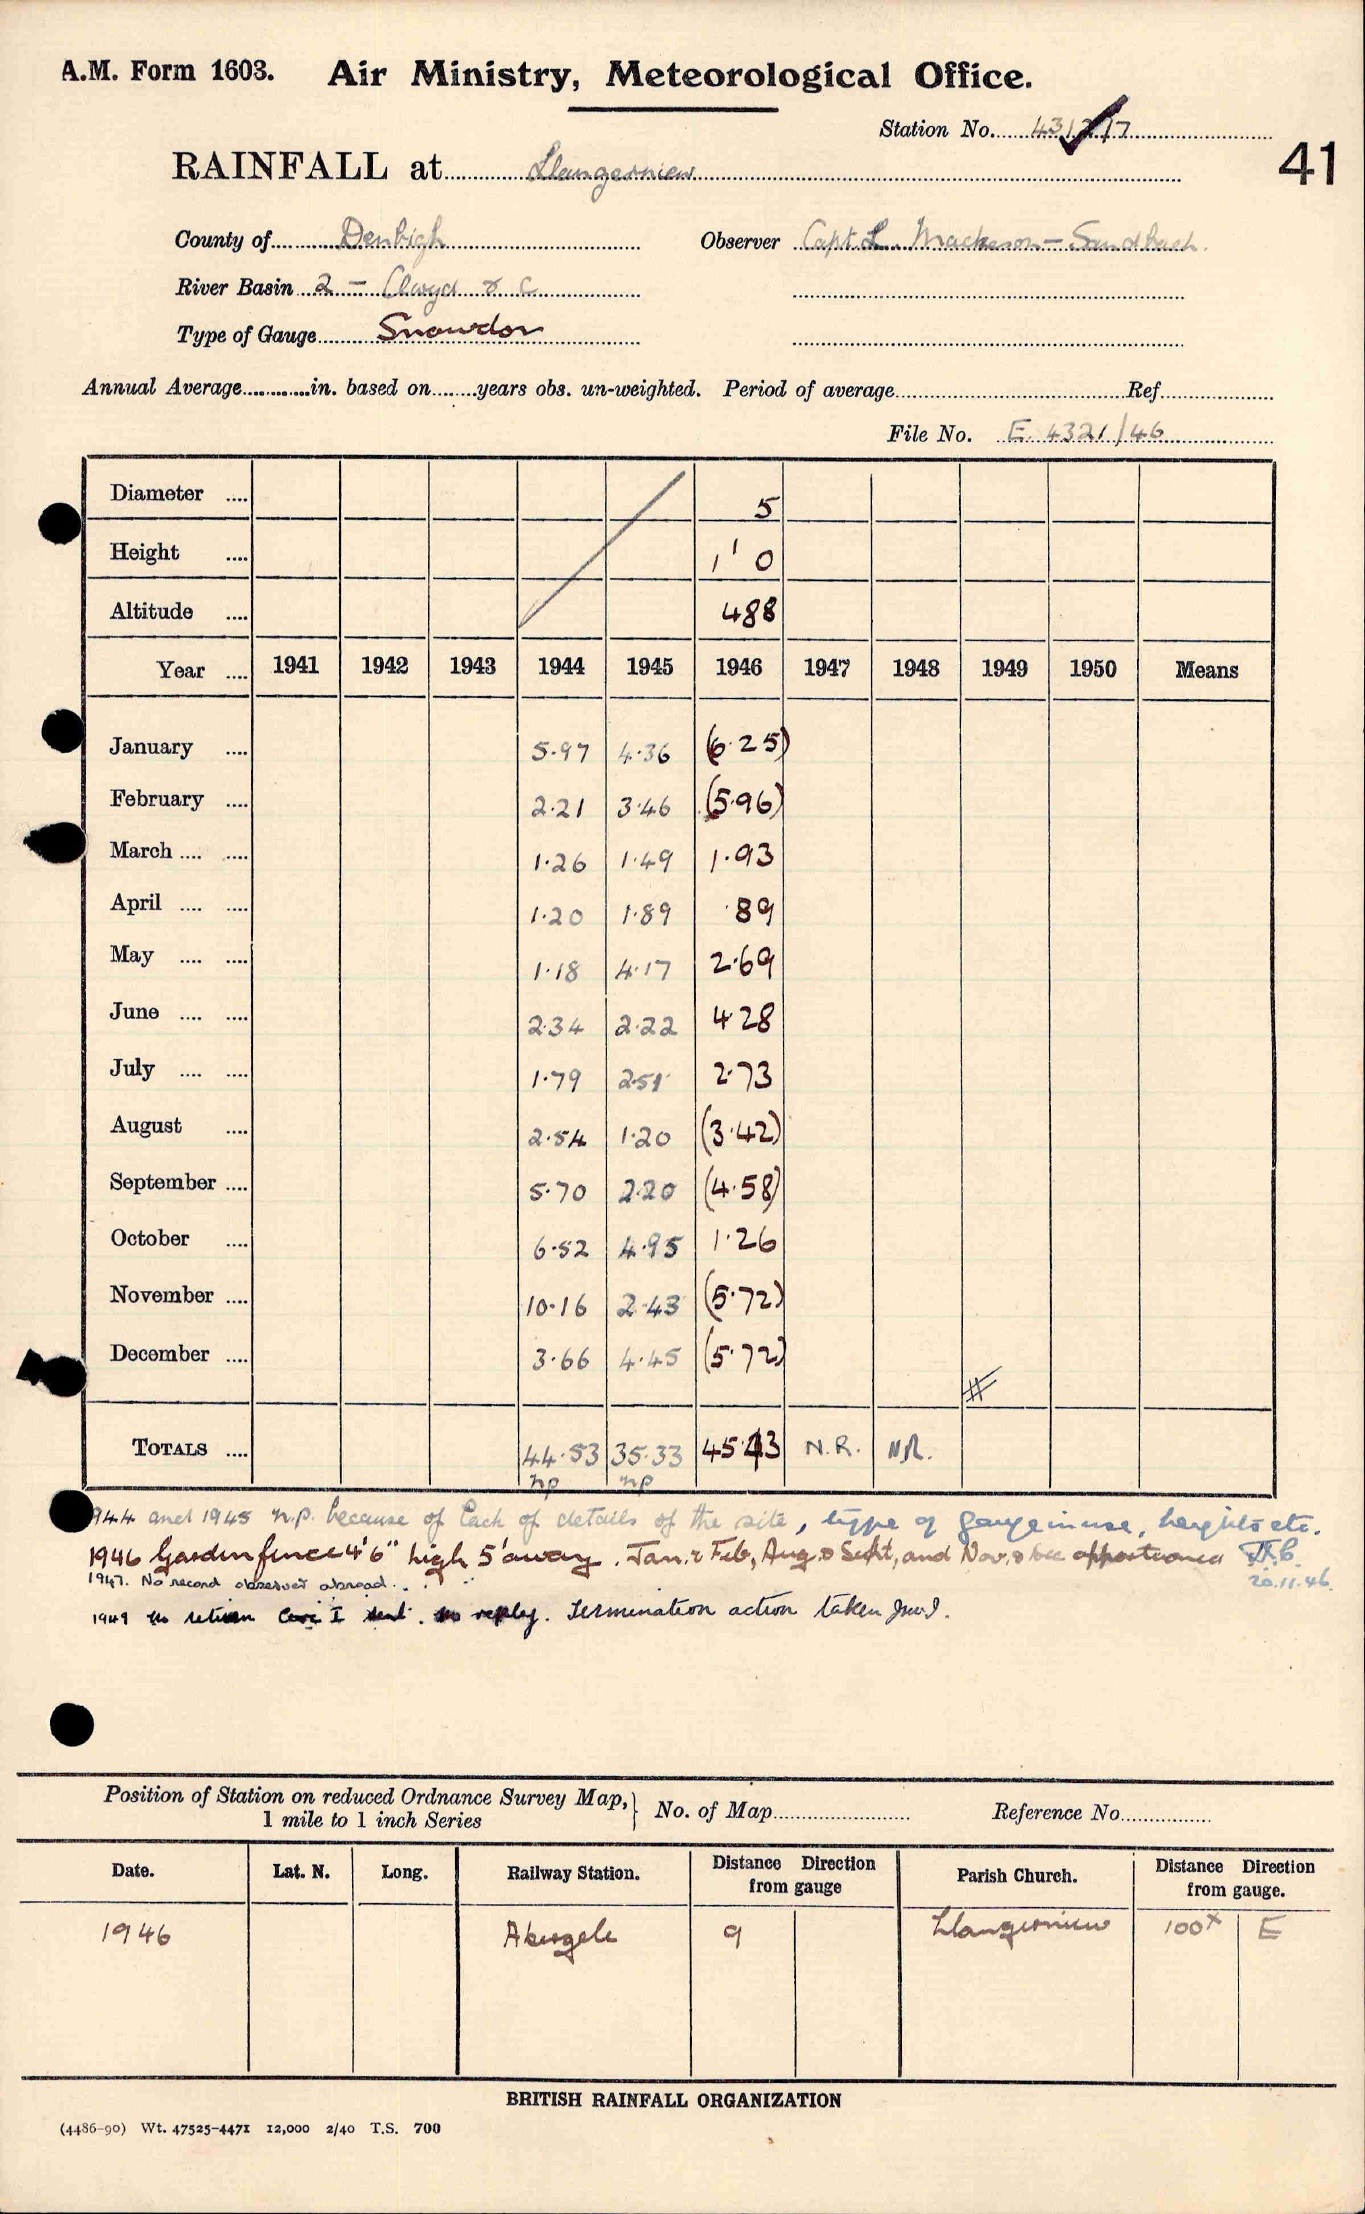 A.M. Form 1603. Air Ministry, Meteorological Office.
Station No. 431217
41
RAINFALL at Llangerniew
County of Denbigh Observer Capt L. Mackeson-Sandbach.
River Basin 2 - Clwyd & C
Type of Gauge Snowdon
Annual Average in. based on years obs. un-weighted. Period of average Ref
File No. E. 4321/46
Diameter .... 5
Height .... 1' 0
Altitude .... 488
Year .... 1941 1942 1943 1944 1945 1946 1947 1948 1949 1950 Means
January .... 5.97 4.36 (6.25)
February .... 2.21 3.46 (5.96)
March .... .... 1.26 1.49 1.93
April .... .... 1.20 1.89 .89
May .... .... 1.18 4.17 2.69
June .... .... 2.34 2.22 4.28
July .... .... 1.79 2.51 2.73
August .... 2.54 1.20 (3.42)
September .... 5.70 2.20 (4.58)
October .... 6.52 4.95 1.26
November .... 10.16 2.43 (5.72)
December .... 3.66 4.45 (5.72)
TOTALS .... 44.53 35.33 45.43 N.R. N.R.
np np
944 and 1945 n.p. because of Lack of details of the site, type of gauge in use, heights etc.
1946 Garden fence 4'6" high 5' away. Jan. & Feb, Aug. & Sept, and Nov. & Dec apportioned
20.11.46.
1947. No record observer abroad.
1949 no return Card I sent. no reply. Termination action taken
Position of Station on reduced Ordnance Survey Map, 1 mile to 1 inch Series } No. of Map Reference No.
Date. Lat. N. Long. Railway Station. Distance Direction from gauge Parish Church. Distance Direction from gauge.
1946 Abergele 9 Llangerniew 100x E
BRITISH RAINFALL ORGANIZATION
(4486-90) Wt. 47525-4471 12,000 2/40 T.S. 700